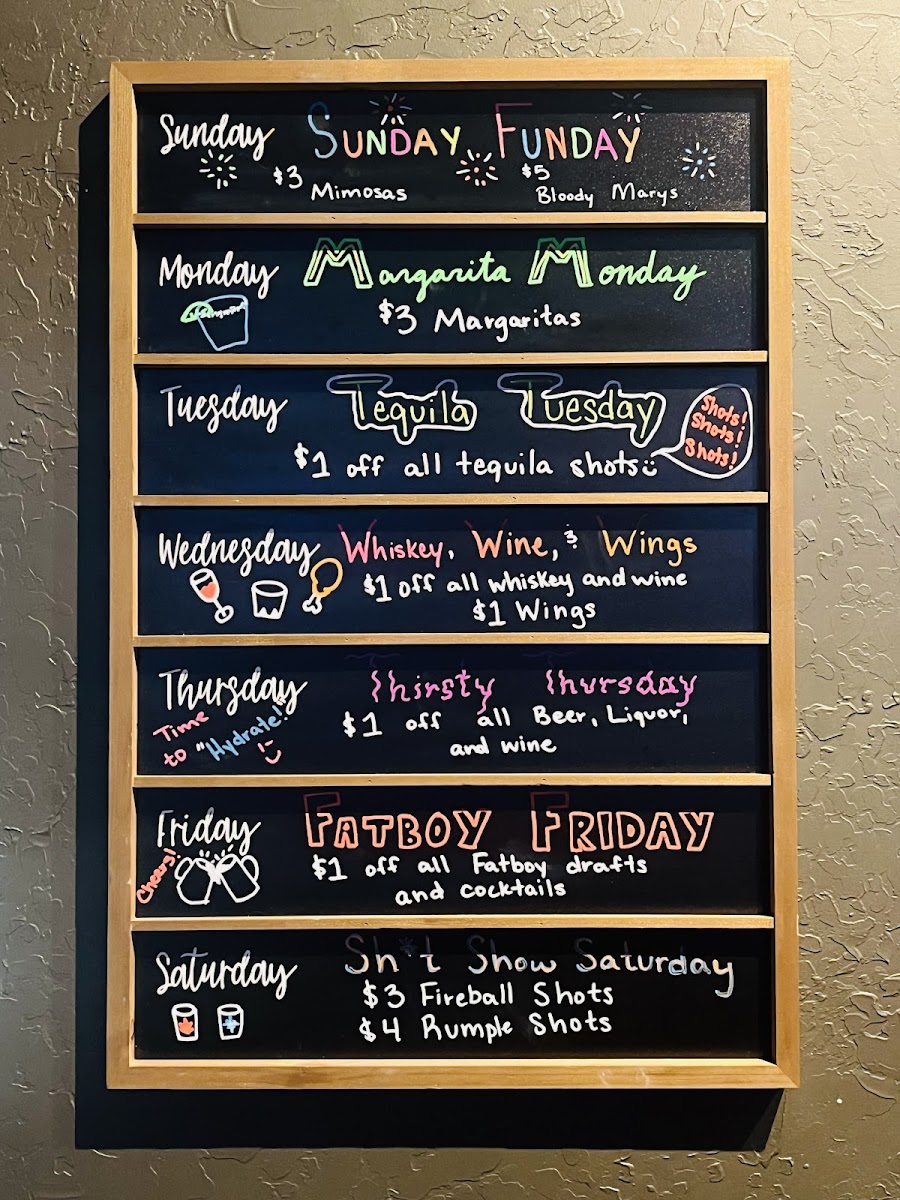 Sunday
SUNDAY FUNDAY
$3 Mimosas
$5 Bloody Marys
Monday
Margarita Monday
$3 Margaritas
Tuesday
Tequila Tuesday
$1 off all tequila shots
Shots!
Shots!
Shots!
Wednesday
Whiskey, Wine, & Wings
$1 off all whiskey and wine
$1 Wings
Thursday
Time
to "Hydrate!"
Thirsty Thursday
$1 off all Beer, Liquor,
and wine
Friday
Cheers!
FATBOY FRIDAY
$1 off all Fatboy drafts
and cocktails
Saturday
Sh*t Show Saturday
$3 Fireball Shots
$4 Rumple Shots